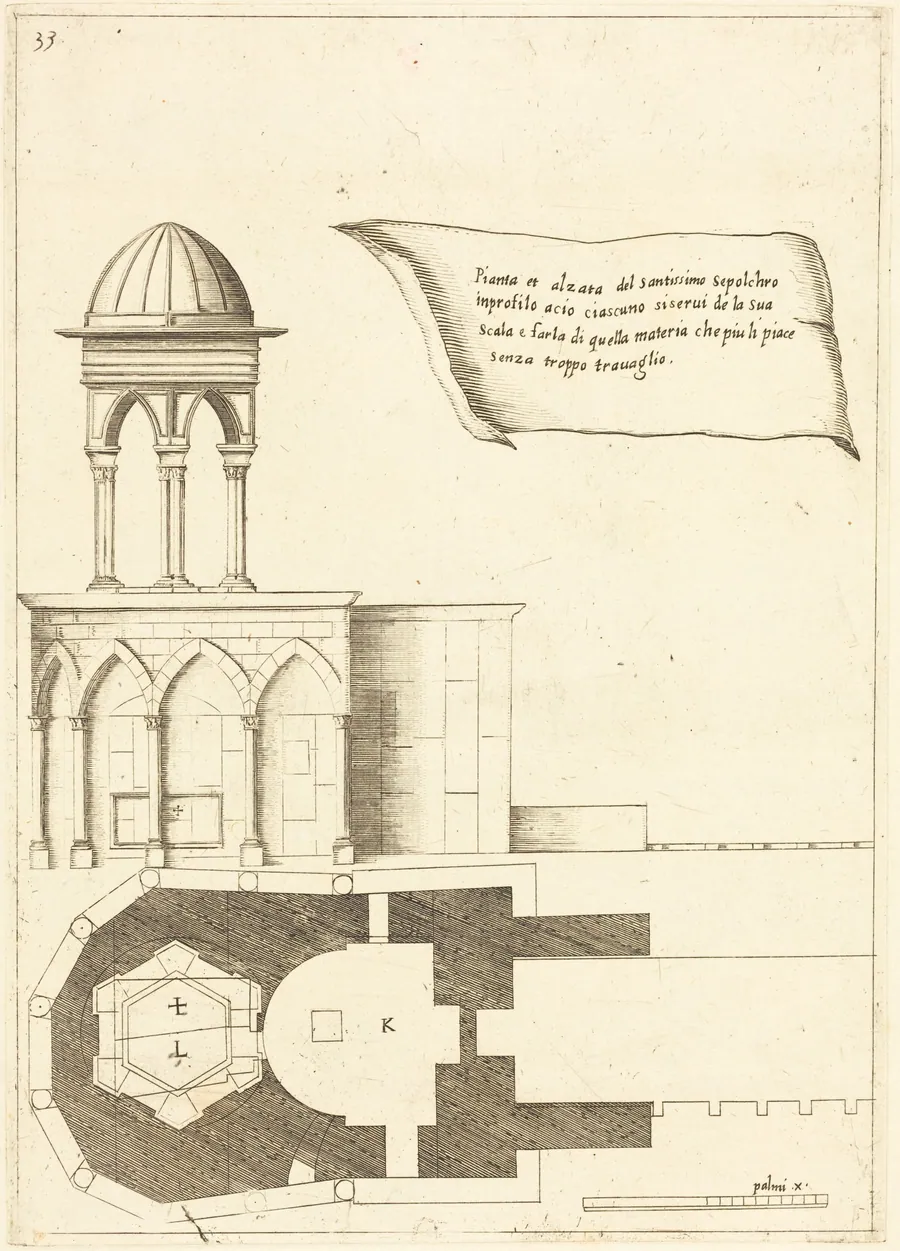 33
Pianta et alzata del santissimo sepolchro
inprofilo acio ciascuno siserui de la sua
scala e farla di quella materia che piu li piace
senza troppo trauaglio.
K
L
palmi .x.